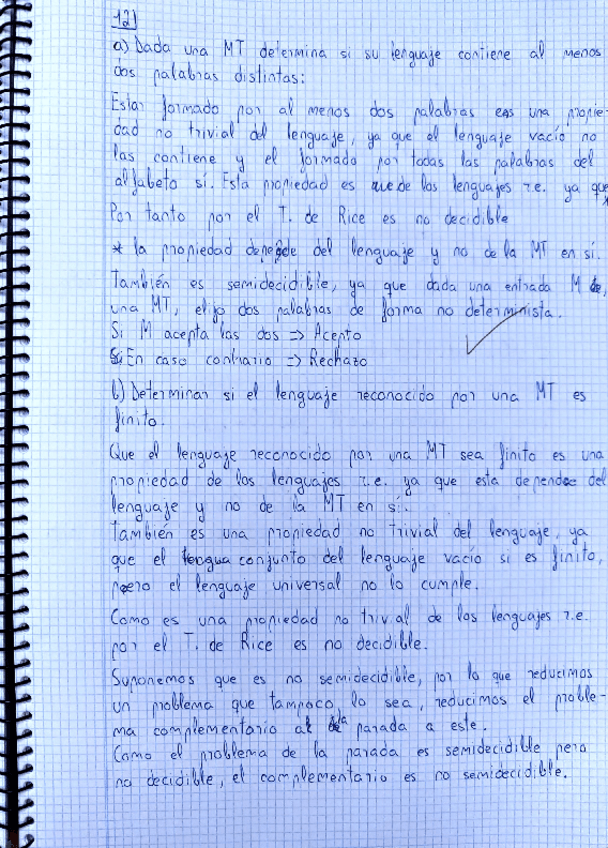 12)
a) Dada una MT determina si su lenguaje contiene al menos
dos palabras distintas:
Estar formado por al menos dos palabras es una propie-
dad no trivial del lenguaje, ya que el lenguaje vacío no
las contiene y el formado por todas las palabras del
alfabeto sí. Esta propiedad es de los lenguajes r.e. ya que *
Por tanto por el T. de Rice es no decidible
* la propiedad depende del lenguaje y no de la MT en sí.
También es semidecidible, ya que dada una entrada M,
una MT, elijo dos palabras de forma no determinista.
Si M acepta las dos => Acepto
En caso contrario => Rechazo
b) Determinar si el lenguaje reconocido por una MT es
finito.
Que el lenguaje reconocido por una MT sea finito es una
propiedad de los lenguajes r.e. ya que esta depende del
lenguaje y no de la MT en sí.
También es una propiedad no trivial del lenguaje, ya
que el conjunto del lenguaje vacío si es finito,
pero el lenguaje universal no lo cumple.
Como es una propiedad no trivial de los lenguajes r.e.
por el T. de Rice es no decidible.
Suponemos que es no semidecidible, por lo que reducimos
un problema que tampoco lo sea, reducimos el proble-
ma complementario a la parada a este.
Como el problema de la parada es semidecidible pero
no decidible, el complementario es no semidecidible.